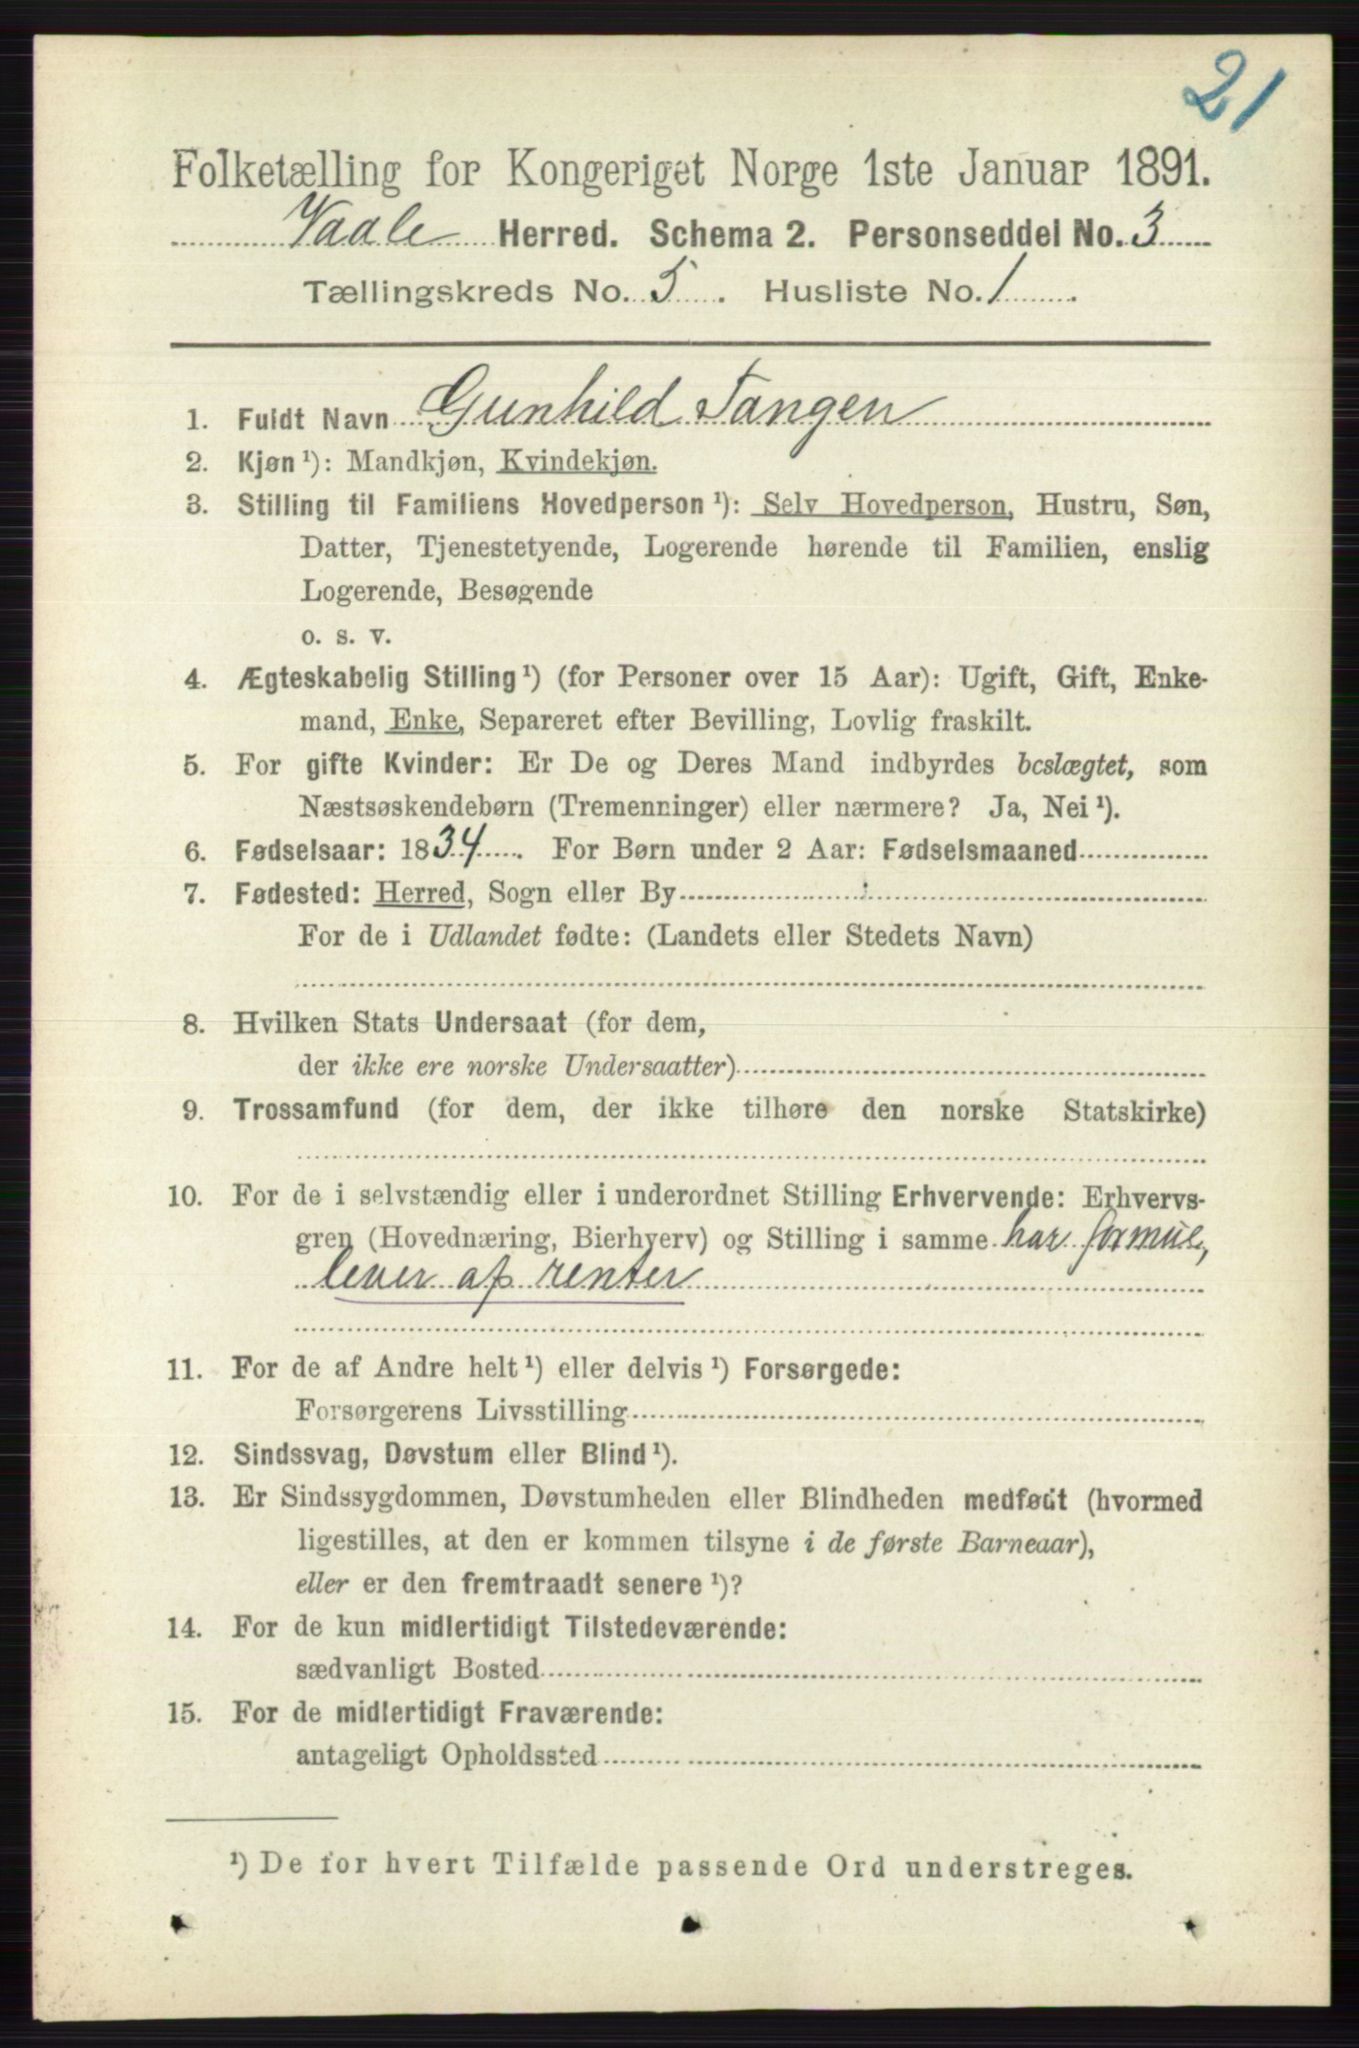 21
Folketælling for Kongeriget Norge 1ste Januar 1891.
Vaale Herred. Schema 2. Personseddel No. 3
Tællingskreds No. 5. Husliste No. 1.
1. Fuldt Navn Gunhild Tangen
2. Kjøn ¹): Mandkjøn, Kvindekjøn.
3. Stilling til Familiens Hovedperson ¹): Selv Hovedperson, Hustru, Søn,
Datter, Tjenestetyende, Logerende hørende til Familien, enslig
Logerende, Besøgende
o. s. v.
4. Ægteskabelig Stilling ¹) (for Personer over 15 Aar): Ugift, Gift, Enke-
mand, Enke, Separeret efter Bevilling, Lovlig fraskilt.
5. For gifte Kvinder: Er De og Deres Mand indbyrdes beslægtet, som
Næstsøskendebørn (Tremenninger) eller nærmere? Ja, Nei ¹).
6. Fødselsaar: 1834. For Børn under 2 Aar: Fødselsmaaned
7. Fødested: Herred, Sogn eller By
For de i Udlandet fødte: (Landets eller Stedets Navn)
8. Hvilken Stats Undersaat (for dem,
der ikke ere norske Undersaatter)
9. Trossamfund (for dem, der ikke tilhøre den norske Statskirke)
10. For de i selvstændig eller i underordnet Stilling Erhvervende: Erhvervs-
gren (Hovednæring, Bierhverv) og Stilling i samme har formue,
lever af renter
11. For de af Andre helt ¹) eller delvis ¹) Forsørgede:
Forsørgerens Livsstilling
12. Sindssvag, Døvstum eller Blind ¹).
13. Er Sindssygdommen, Døvstumheden eller Blindheden medfødt (hvormed
ligestilles, at den er kommen tilsyne i de første Barneaar),
eller er den fremtraadt senere ¹)?
14. For de kun midlertidigt Tilstedeværende:
sædvanligt Bosted
15. For de midlertidigt Fraværende:
antageligt Opholdssted
¹) De for hvert Tilfælde passende Ord understreges.